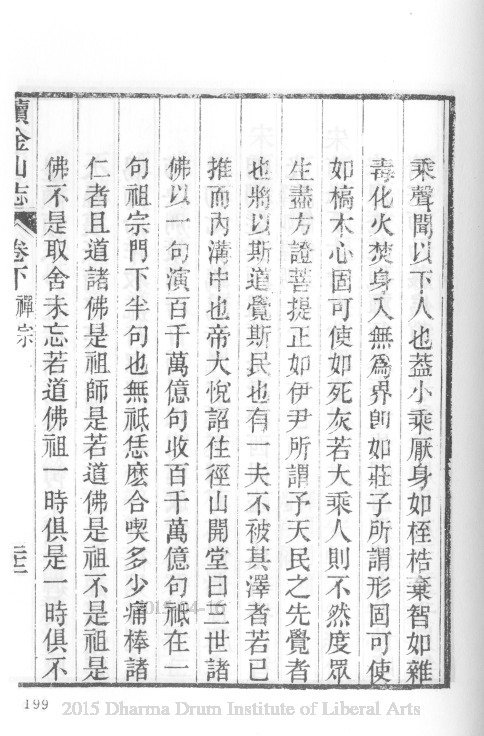 乘聲聞以下人也葢小乘厭身如桎梏棄智如雜
毒化火焚身入無爲界卽如莊子所謂形固可使
如槁木心固可使如死灰若大乘人則不然度眾
生盡方證菩提正如伊尹所謂予天民之先覺者
也將以斯道覺斯民也有一夫不被其澤者若已
推而內溝中也帝大悅詔住徑山開堂曰三世諸
佛以一句演百千萬億句收百千萬億句祇在一
句祖宗門下半句也無祇恁麽合喫多少痛棒諸
仁者且道諸佛是祖師是若道佛是祖不是祖是
佛不是取舍未忘若道佛祖一時俱是一時俱不
續金山志 卷下 禪宗
199
2015-04-16
2015 Dharma Drum Institute of Liberal Arts